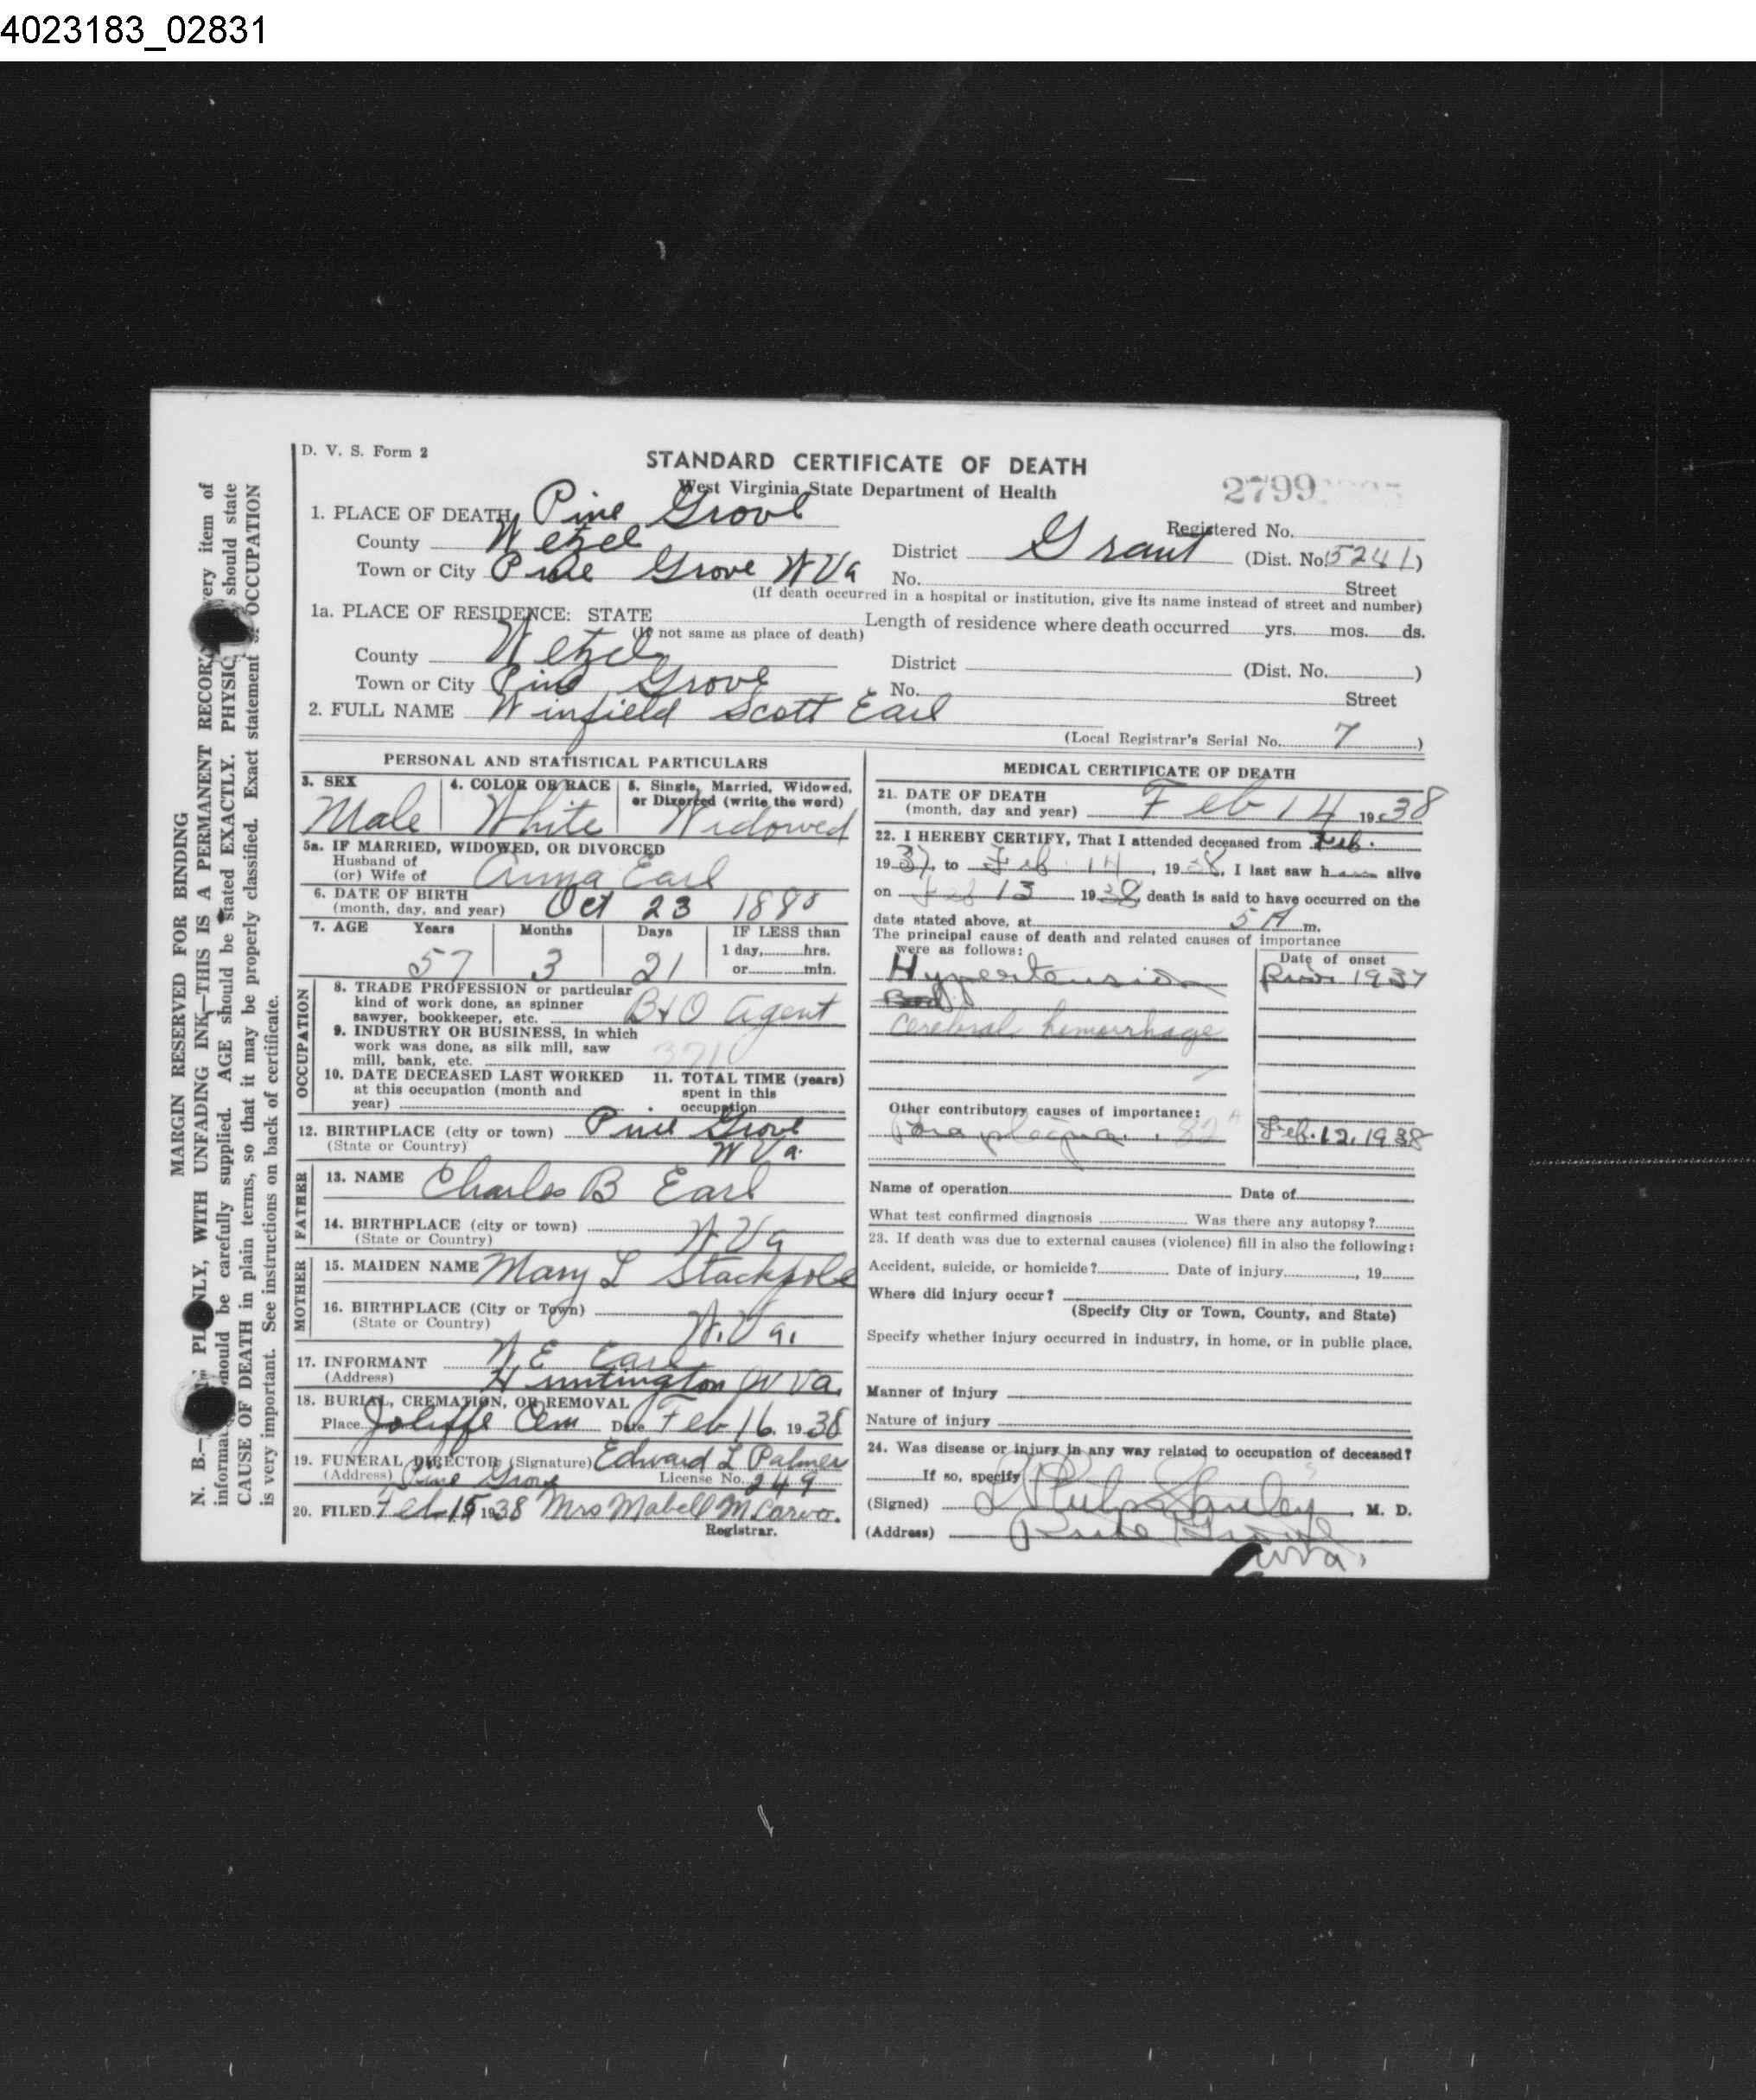 4023183_02831
D. V. S. Form 2
STANDARD CERTIFICATE OF DEATH
West Virginia State Department of Health
2799
1. PLACE OF DEATH Pine Grove
Registered No.
County Wetzel
District Grant (Dist. No. 5241)
Town or City Pine Grove W Va
No. Street
(If death occurred in a hospital or institution, give its name instead of street and number)
1a. PLACE OF RESIDENCE: STATE
(If not same as place of death)
Length of residence where death occurred yrs. mos. ds.
County Wetzel
District (Dist. No. )
Town or City Pine Grove
No. Street
2. FULL NAME Winfield Scott Earl
(Local Registrar's Serial No. 7 )
PERSONAL AND STATISTICAL PARTICULARS
3. SEX
Male
4. COLOR OR RACE
White
5. Single, Married, Widowed,
or Divorced (write the word)
Widowed
5a. IF MARRIED, WIDOWED, OR DIVORCED
Husband of
(or) Wife of Anna Earl
6. DATE OF BIRTH
(month, day, and year) Oct 23 1880
7. AGE Years Months Days IF LESS than
1 day, hrs.
57 3 21 or min.
OCCUPATION
8. TRADE PROFESSION or particular
kind of work done, as spinner
sawyer, bookkeeper, etc. B & O agent
9. INDUSTRY OR BUSINESS, in which
work was done, as silk mill, saw
mill, bank, etc.
10. DATE DECEASED LAST WORKED
at this occupation (month and
year)
11. TOTAL TIME (years)
spent in this
occupation
12. BIRTHPLACE (city or town) Pine Grove
(State or Country) W Va.
FATHER
13. NAME Charles B Earl
14. BIRTHPLACE (city or town)
(State or Country) W Va
MOTHER
15. MAIDEN NAME Mary L Stackpole
16. BIRTHPLACE (City or Town)
(State or Country) W. Va.
17. INFORMANT W E Earl
(Address) Huntington W Va.
18. BURIAL, CREMATION, OR REMOVAL
Place Joliffe Cem Date Feb 16 1938
19. FUNERAL DIRECTOR (Signature) Edward L Palmer
(Address) Pine Grove License No. 249
20. FILED Feb 15 1938 Mrs Mabell M
Registrar.
MEDICAL CERTIFICATE OF DEATH
21. DATE OF DEATH
(month, day and year) Feb 14 1938
22. I HEREBY CERTIFY, That I attended deceased from Feb.
1937, to Feb 14, 1938, I last saw h alive
on Feb 13 1938, death is said to have occurred on the
date stated above, at 5 A m.
The principal cause of death and related causes of importance
were as follows:
Date of onset
Hypertension 1937
cerebral hemorrhage
Other contributory causes of importance:
Feb. 12, 1938
Name of operation Date of
What test confirmed diagnosis Was there any autopsy?
23. If death was due to external causes (violence) fill in also the following:
Accident, suicide, or homicide? Date of injury , 19
Where did injury occur?
(Specify City or Town, County, and State)
Specify whether injury occurred in industry, in home, or in public place.
Manner of injury
Nature of injury
24. Was disease or injury in any way related to occupation of deceased?
If so, specify
(Signed) M. D.
(Address) Pine Grove
W Va.
MARGIN RESERVED FOR BINDING
N. B. NLY, WITH UNFADING INK—THIS IS A PERMANENT RECORD very item of
should be carefully supplied. AGE should be stated EXACTLY. should state
CAUSE OF DEATH in plain terms, so that it may be properly classified. Exact statement OCCUPATION
is very important. See instructions on back of certificate.